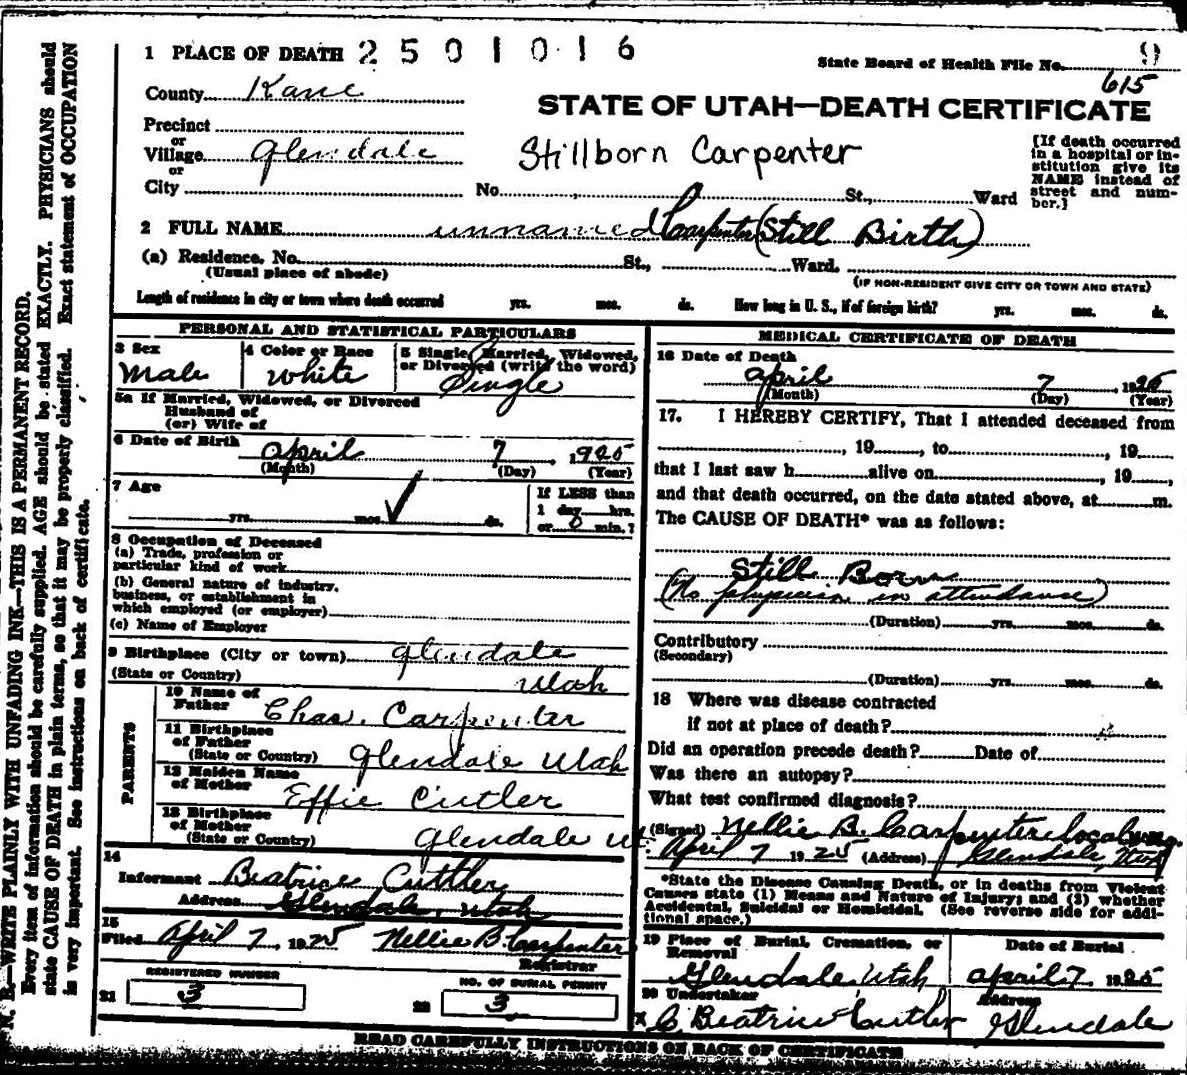 1 PLACE OF DEATH 2501016
State Board of Health File No. 9
615
County Kane
STATE OF UTAH—DEATH CERTIFICATE
Precinct
or
Village Glendale
or
City
Stillborn Carpenter
[If death occurred
in a hospital or in-
stitution give its
NAME instead of
street and num-
ber.]
No. St., Ward
2 FULL NAME unnamed Carpenter (Still Birth)
(a) Residence. No. St., Ward.
(Usual place of abode)
(IF NON-RESIDENT GIVE CITY OR TOWN AND STATE)
Length of residence in city or town where death occurred yrs. mos. ds. How long in U. S., if of foreign birth? yrs. mos. ds.
PERSONAL AND STATISTICAL PARTICULARS
3 Sex
Male
4 Color or Race
White
5 Single, Married, Widowed,
or Divorced (write the word)
Single
5a If Married, Widowed, or Divorced
Husband of
(or) Wife of
6 Date of Birth April 7, 1925
(Month) (Day) (Year)
7 Age
yrs. mos. ds.
If LESS than
1 day hrs.
or 0 min.?
8 Occupation of Deceased
(a) Trade, profession or
particular kind of work
(b) General nature of industry,
business, or establishment in
which employed (or employer)
(c) Name of Employer
9 Birthplace (City or town) Glendale
(State or Country) Utah
PARENTS
10 Name of
Father Chas. Carpenter
11 Birthplace
of Father
(State or Country) Glendale Utah
12 Maiden Name
of Mother Effie Cutler
13 Birthplace
of Mother
(State or Country) Glendale Ut.
14
Informant Beatrice Cuttler
Address Glendale, Utah
15
Filed April 7 1925 Nellie B. Carpenter
Registrar
REGISTERED NUMBER
21 3
NO. OF BURIAL PERMIT
22 3
MEDICAL CERTIFICATE OF DEATH
16 Date of Death
April 7, 1925
(Month) (Day) (Year)
17. I HEREBY CERTIFY, That I attended deceased from
, 19 , to , 19
that I last saw h alive on , 19 ,
and that death occurred, on the date stated above, at m.
The CAUSE OF DEATH* was as follows:
Still Born
(No physician in attendance)
(Duration) yrs. mos. ds.
Contributory
(Secondary)
(Duration) yrs. mos. ds.
18 Where was disease contracted
if not at place of death?
Did an operation precede death? Date of
Was there an autopsy?
What test confirmed diagnosis?
(Signed) Nellie B. Carpenter local reg.
April 7 1925 (Address) Glendale, Utah
*State the Disease Causing Death, or in deaths from Violent
Causes state (1) Means and Nature of Injury; and (2) whether
Accidental, Suicidal or Homicidal. (See reverse side for addi-
tional space.)
19 Place of Burial, Cremation, or
Removal
Glendale, Utah
Date of Burial
April 7 1925
20 Undertaker
x C Beatrice Cutler
Address
Glendale
READ CAREFULLY INSTRUCTIONS ON BACK OF CERTIFICATE
N. B.—WRITE PLAINLY WITH UNFADING INK—THIS IS A PERMANENT RECORD.
Every item of information should be carefully supplied. AGE should be stated EXACTLY. PHYSICIANS should
state CAUSE OF DEATH in plain terms, so that it may be properly classified. Exact statement of OCCUPATION
is very important. See instructions on back of certificate.